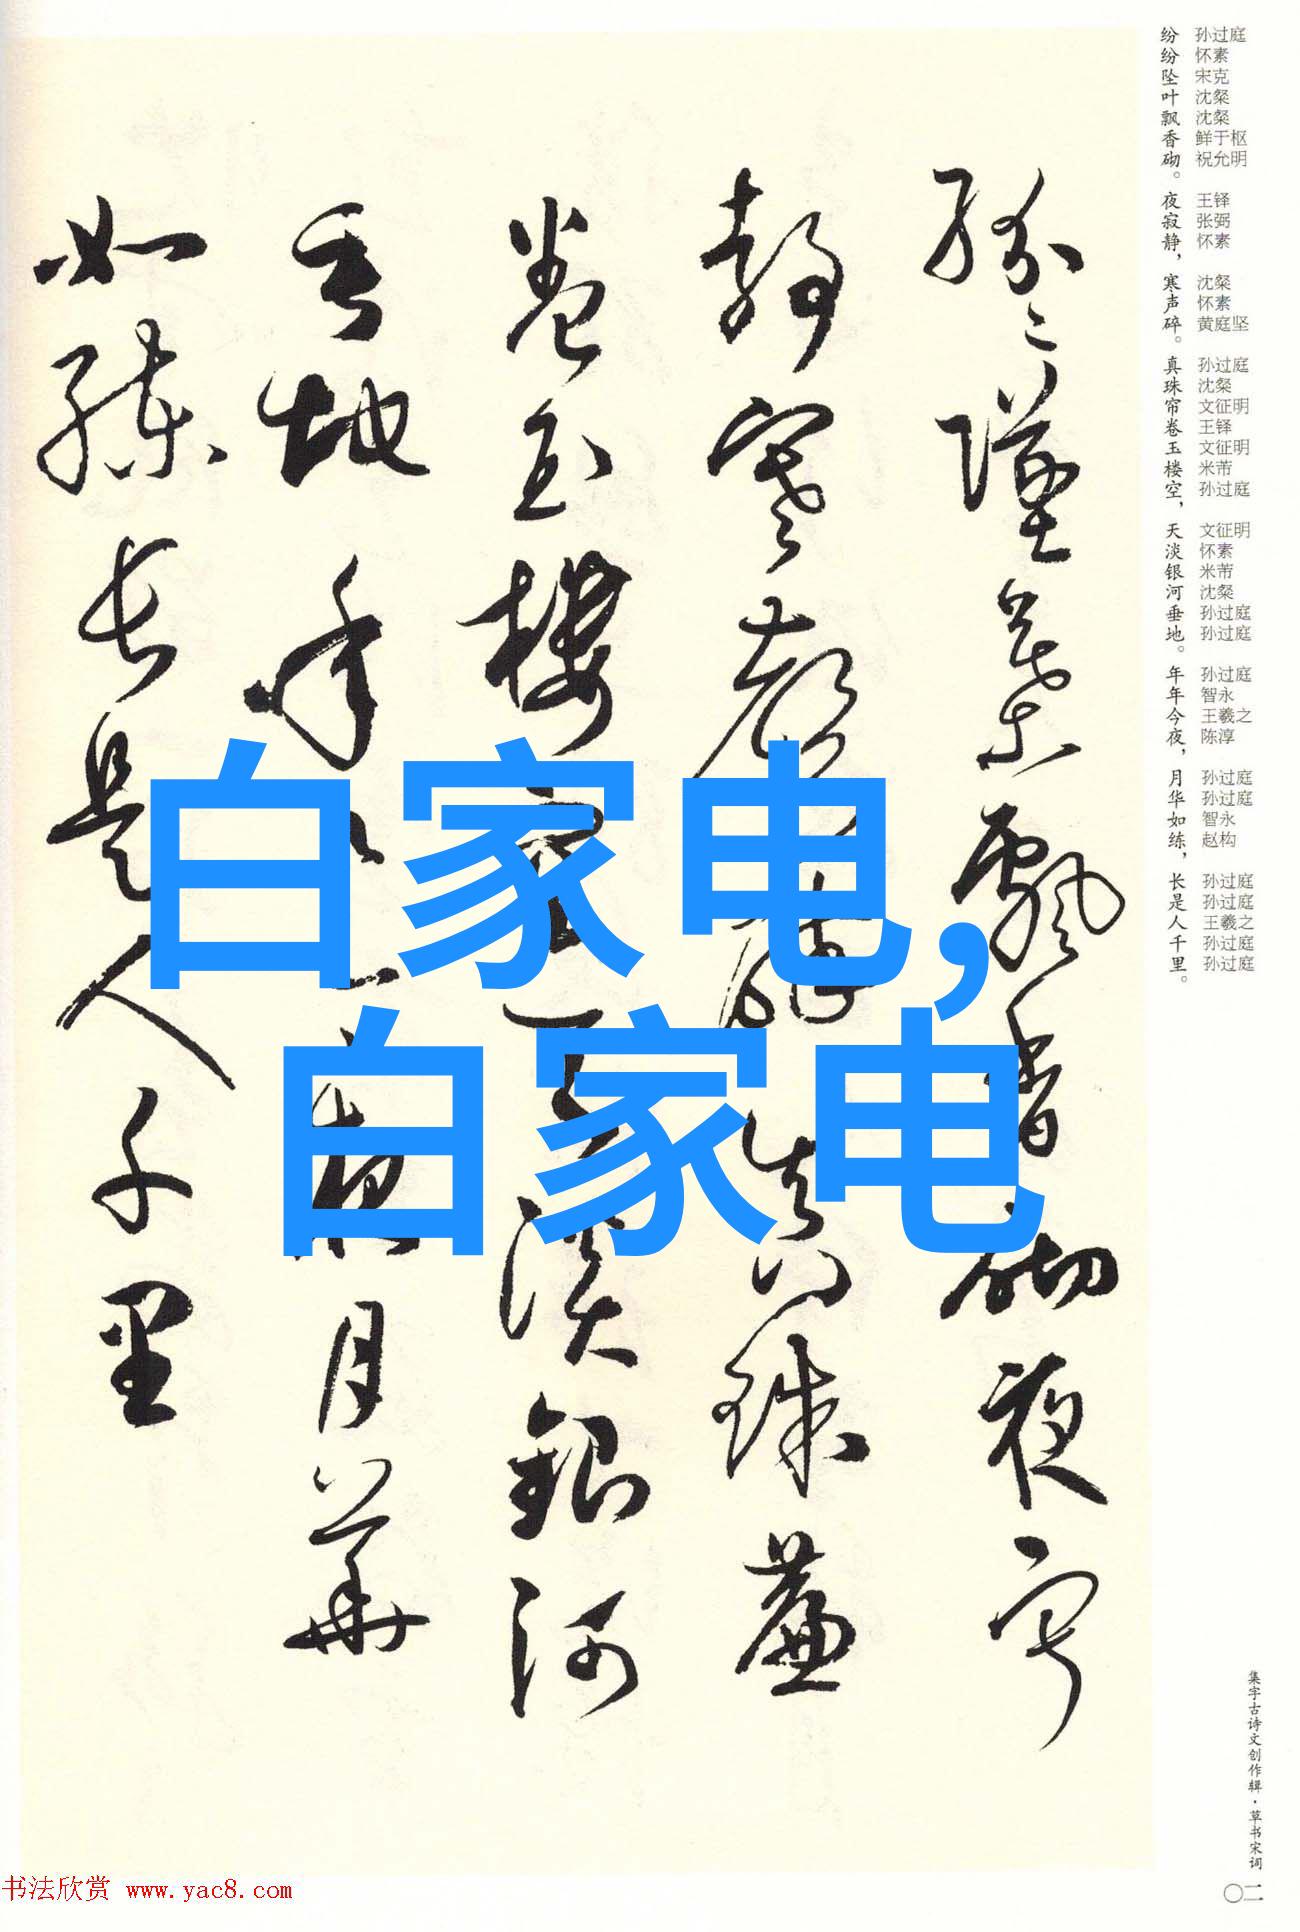 纷纷坠叶飘香砌。夜寂静，寒声碎。真珠帘卷玉楼空，天淡银河垂地。年年今夜，月华如练，长是人千里。
孙过庭
怀素
宋克
沈粲
沈粲
鲜于枢
祝允明
王铎
张弼
怀素
沈粲
怀素
黄庭坚
孙过庭
沈粲
文征明
王铎
文征明
米芾
孙过庭
文征明
怀素
米芾
沈粲
孙过庭
孙过庭
孙过庭
智永
王羲之
陈淳
孙过庭
孙过庭
智永
赵构
孙过庭
孙过庭
王羲之
孙过庭
孙过庭
纷〻坠叶飘香砌夜寂
静寒声碎真珠帘
卷玉楼空天淡银河
垂地年年今夜月华
如练长是人千里
白家电,
白家电
集字古诗文创作辑·草书宋词
〇二
书法欣赏 www.yac8.com